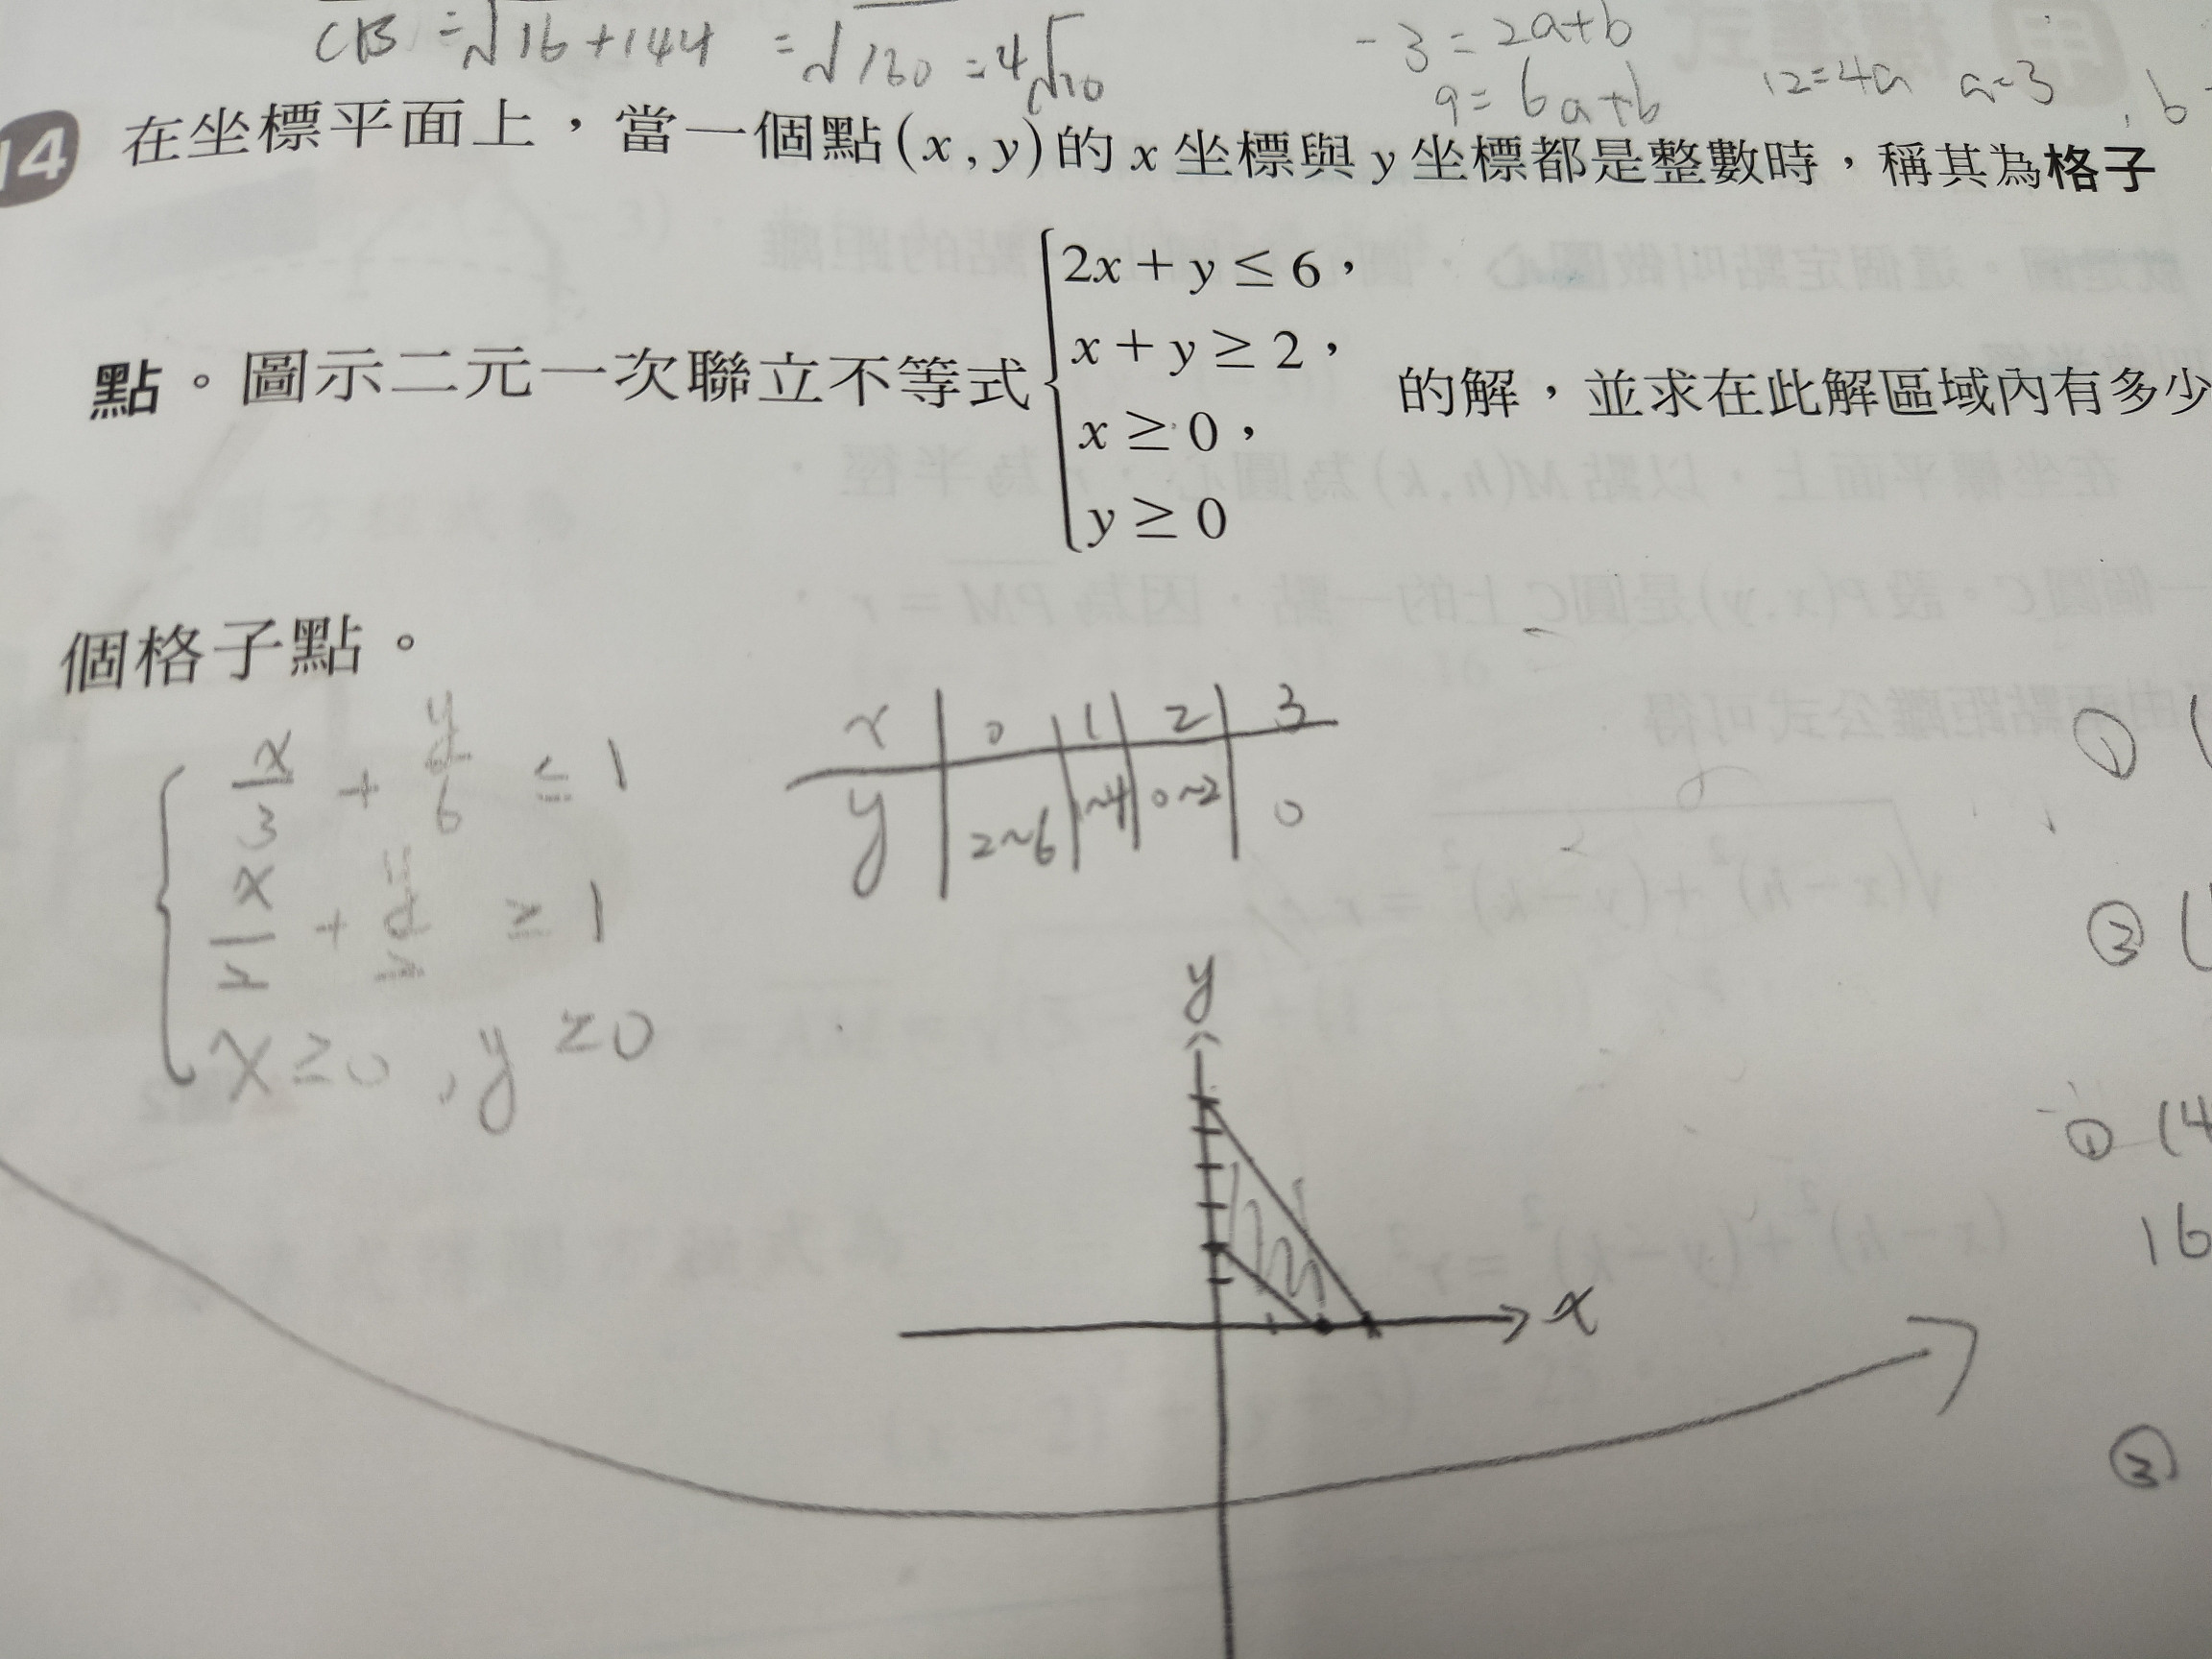 CB = √16+144 = √160 = 4√10
-3 = 2a+b
9 = 6a+b 12=4a a=3 , b
14 在坐標平面上，當一個點(x , y)的 x 坐標與 y 坐標都是整數時，稱其為格子
點。圖示二元一次聯立不等式 的解，並求在此解區域內有多少
2x + y ≤ 6，
x + y ≥ 2，
x ≥ 0，
y ≥ 0
個格子點。
x/3 + y/6 ≤ 1
x/2 + y/2 ≥ 1
x ≥ 0 , y ≥ 0
x 0 1 2 3
y 2~6 1~4 0~2 0
y
x
① (
② (
① 14
16
②